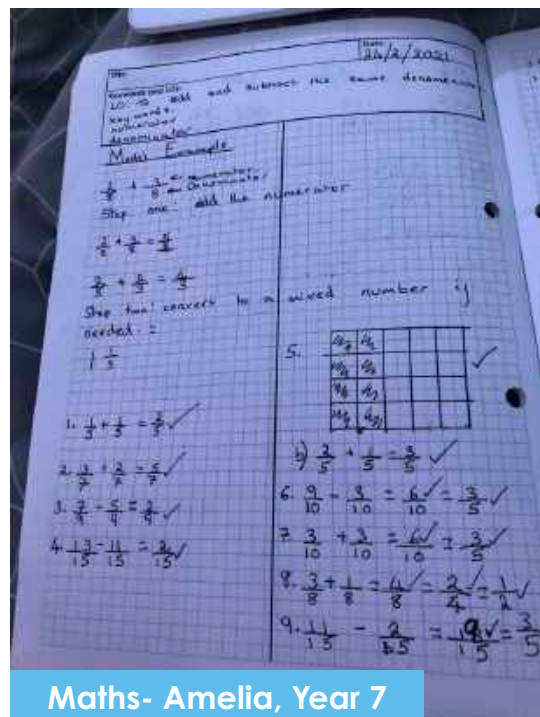 Title:
Date:
24/2/2021
LO: To add and subtract the same denominator
Key words
numerator
denominator
Model Example
+ 3/8 ← numerator
← Denominator
Step one: add the numerator
Step two: convert to a mixed number if
needed. =
1 1/3
1. 1/3 + 1/3 = 2/3 ✓
2. 3/7 + 2/7 = 5/7 ✓
3. 7/9 - 5/9 = 2/9 ✓
4. 13/15 - 11/15 = 2/15 ✓
5.
✓
b) 2/5 + 1/5 = 3/5 ✓
6. 9/10 - 3/10 = 6/10 ✓ = 3/5 ✓
7. 3/10 + 3/10 = 6/10 ✓ = 3/5 ✓
8. 3/8 + 1/8 = 4/8 ✓ = 2/4 ✓ = 1/2 ✓
9. 11/15 - 2/15 = 9/15 ✓ = 3/5
Maths- Amelia, Year 7